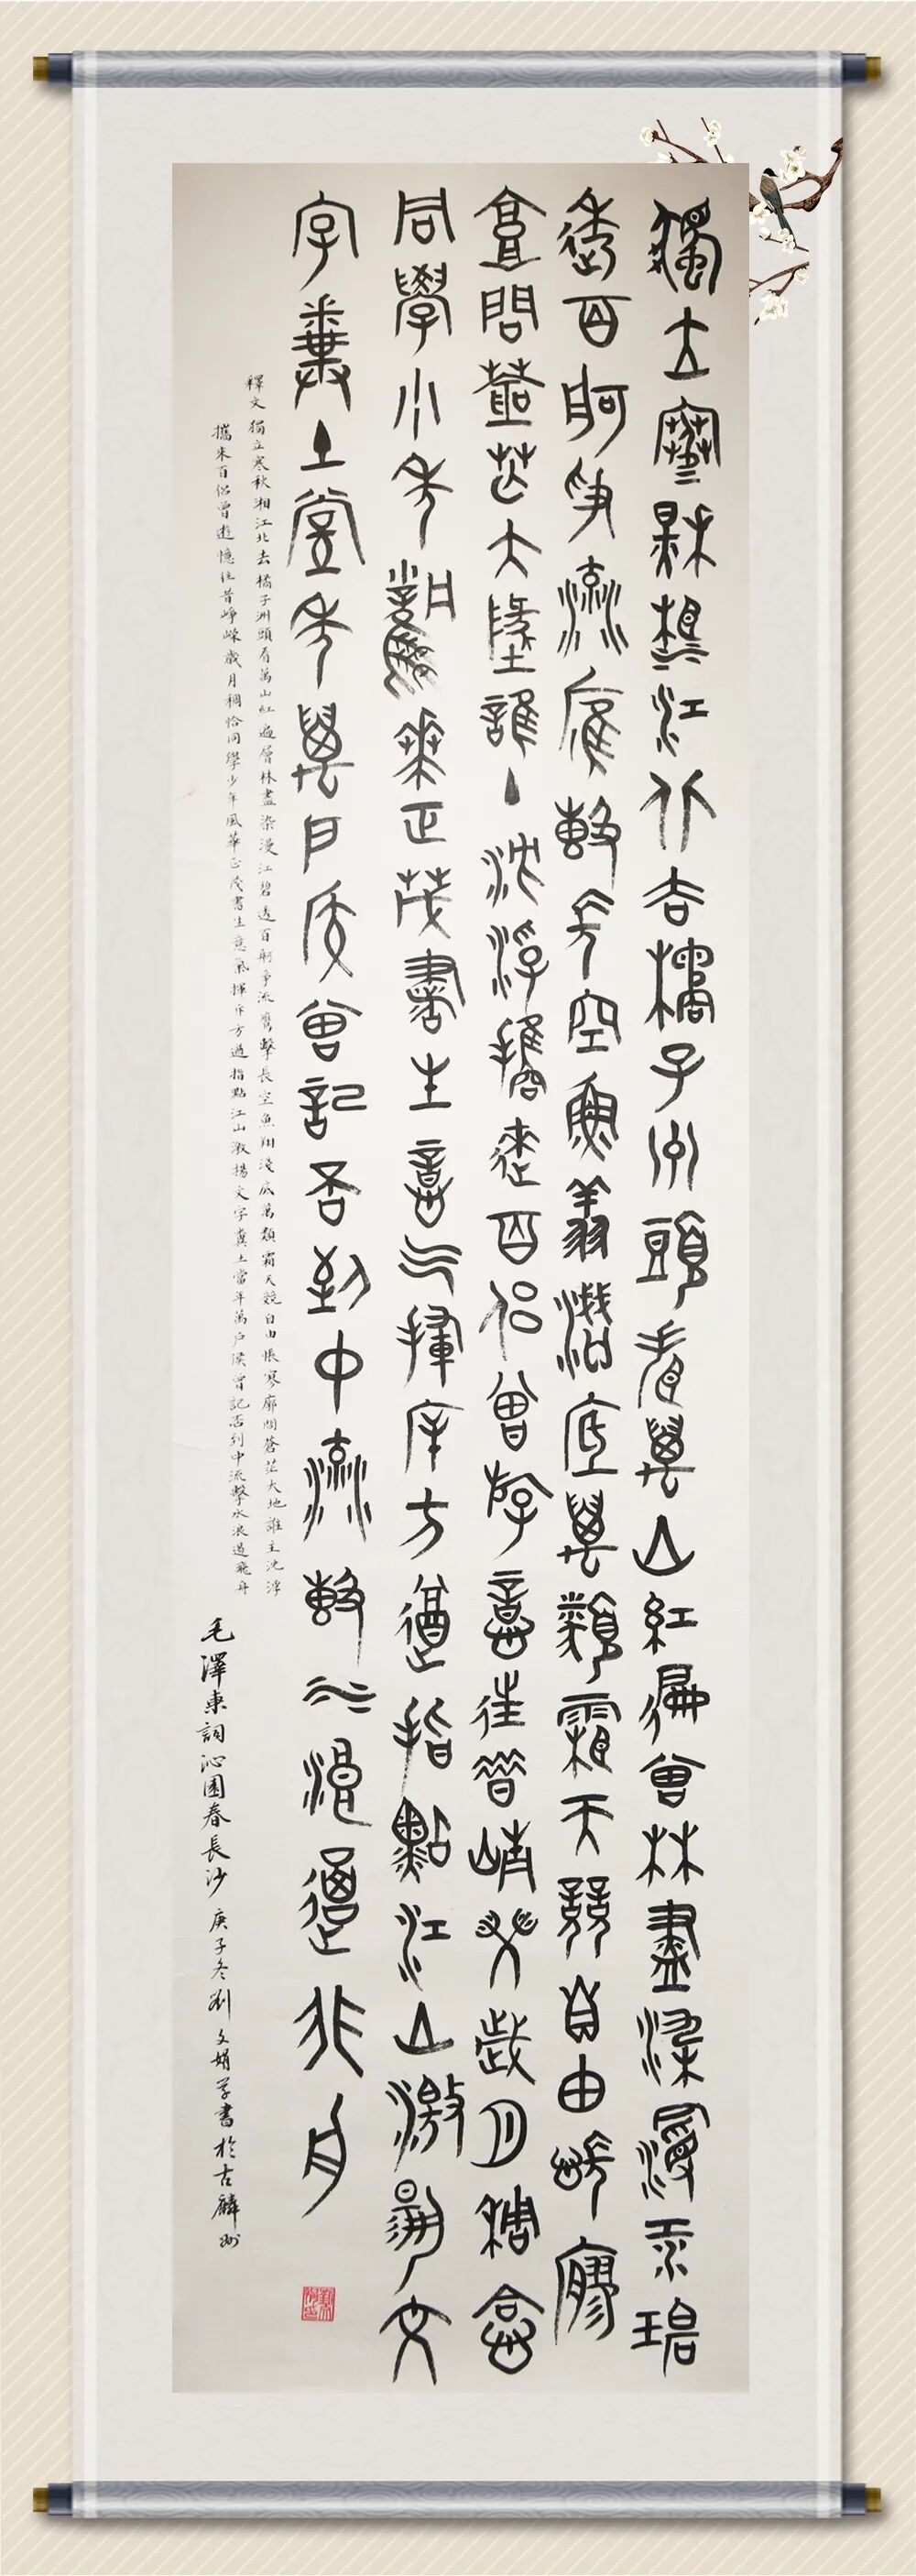 獨立寒秋湘江北去橘子洲頭看萬山紅遍層林盡染漫江碧
透百舸爭流鷹擊長空魚翔淺底萬類霜天競自由悵寥
廓問蒼茫大地誰主沈浮攜來百侶曾遊憶往昔崢嶸歲月稠恰
同學少年風華正茂書生意氣揮斥方遒指點江山激揚文
字糞土當年萬戶侯曾記否到中流擊水浪遏飛舟
釋文 獨立寒秋湘江北去橘子洲頭看萬山紅遍層林盡染漫江碧透百舸爭流鷹擊長空魚翔淺底萬類霜天競自由悵寥廓問蒼茫大地誰主沈浮
攜來百侶曾遊憶往昔崢嶸歲月稠恰同學少年風華正茂書生意氣揮斥方遒指點江山激揚文字糞土當年萬戶侯曾記否到中流擊水浪遏飛舟
毛澤東詞沁園春長沙 庚子冬劉文娟學書於古麟州